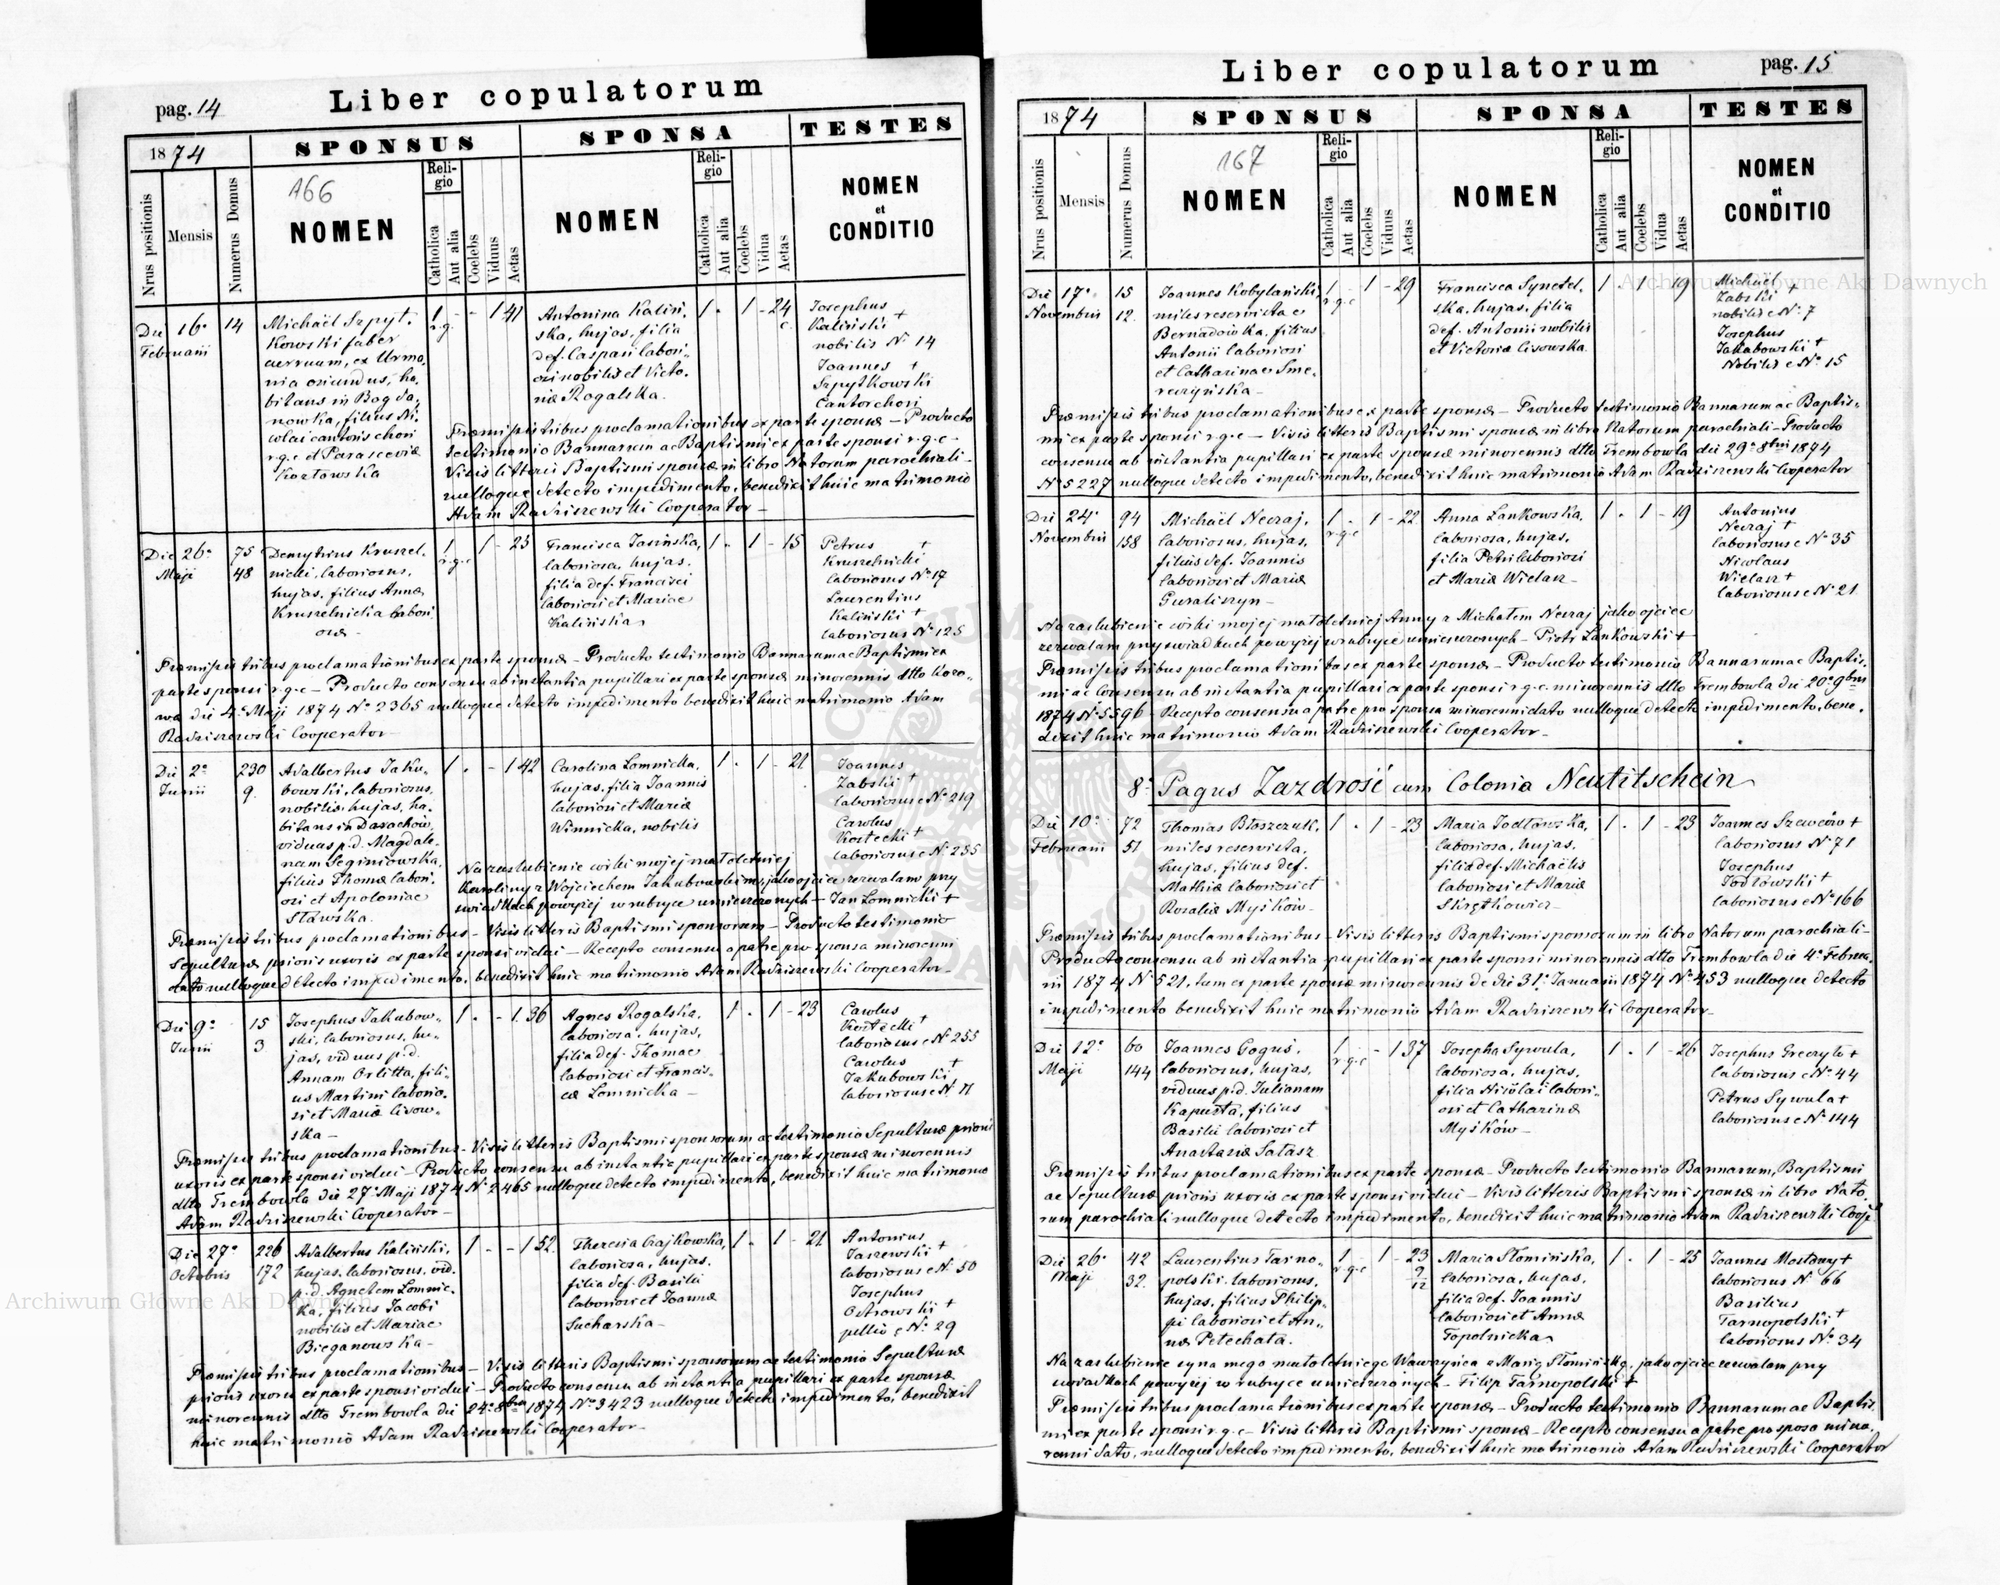 Liber copulatorum
pag. 14
1874
SPONSUS
SPONSA
TESTES
Nrus positionis
Mensis
Numerus Domus
166
NOMEN
Religio
Catholica
Aut alia
Coelebs
Viduus
Aetas
NOMEN
Religio
Catholica
Aut alia
Coelebs
Vidua
Aetas
NOMEN
et
CONDITIO
Die 16ª
Februarii
14
Michaël Szpyt-
kowski faber
oriundus, ha-
bitans in Bogda-
nowka, filius Ni-
colai cantoris chori
r.g.c et Parasceviæ
Kozłowska
1
r.g.
- - 1 41
Antonina Kaliń-
ska, hujas, filia
def. Caspari labori-
osi nobilis et Victo-
riæ Rogalska.
1 - 1 - 24
Josephus +
Kaliński
nobilis Nº 14
Joannes +
Szpytkowski
Cantor chori
Præmissis tribus proclamationibus ex parte sponsæ - Producto
testimonio Bannarum ac Baptismi ex parte sponsi r.g.c -
Visis litteris Baptismi sponsæ in libro Natorum parochiali -
nulloque detecto impedimento, benedixit huic matrimonio
Adam Radziszewski Cooperator -
Die 26ª
Maji
75
48
Demytrius Kruszel-
nicki, laboriosus,
hujas, filius Annæ
Kruszelnicka labori-
osæ -
1
r.g.c
1 - 25
Francisca Jasińska,
laboriosa, hujas,
filia def. Francisci
laboriosi et Mariae
Kalińska
1 - 1 - 15
Petrus +
Kruszelnicki
laboriosus Nº 17
Laurentius
Kaliński +
laboriosus Nº 125
Præmissis tribus proclamationibus ex parte sponsæ - Producto testimonio Bannarum ac Baptismi ex
parte sponsi r.g.c - Producto consensu ab instantia pupillari ex parte sponsæ minorennis dtto
die 4ª Maji 1874 Nº 2365 nulloque detecto impedimento benedixit huic matrimonio Adam
Radziszewski Cooperator -
Die 2ª
Junii
230
9
Adalbertus Jaku-
bowski, laboriosus,
nobilis, hujas, ha-
bitans in Darachów,
viduus p.d. Magdale-
nam
filius Thomæ labori-
osi et Apoloniae
Stawska.
1 - - 1 42
Carolina Łomnicka,
hujas, filia Joannis
laboriosi et Mariæ
Winnicka, nobilis
1 - 1 - 21
Joannes
Zabski +
laboriosus e Nº 219
Carolus
Kostecki +
laboriosus e Nº 255
Na zaslubienie córki mojej małoletniej
Karoliny z Wojciechem Jakubowskim, jako ojciec, zezwalam przy
swiadkach powyżej w rubryce umieszczonych - Jan Łomnicki +
Præmissis tribus proclamationibus - Visis litteris Baptismi sponsorum - Producto testimonio
Sepulturæ prioris uxoris ex parte sponsi vidui - Recepto consensu a patre pro sponsa minorenni
dato nulloque detecto impedimento, benedixit huic matrimonio Adam Radziszewski Cooperator -
Die 9ª
Junii
15
3
Josephus Jakubow-
ski, laboriosus, hu-
jas, viduus p.d.
Annam Orlitta, fili-
us Martini laborio-
si et Mariæ Lisow-
ska -
1 - - 1 36
Agnes Rogalska,
laboriosa, hujas,
filia def. Thomae
laboriosi et Francis-
cæ Łomnicka -
1 - 1 - 23
Carolus
Kostecki +
laboriosus e Nº 255
Carolus +
Jakubowski
laboriosus e Nº 71
Præmissis tribus proclamationibus - Visis litteris Baptismi sponsorum ac testimonio Sepulturæ prioris
uxoris ex parte sponsi vidui - Producto consensu ab instantia pupillari ex parte sponsæ minorennis
dtto Trembowla die 27ª Maji 1874 Nº 2465 nulloque detecto impedimento, benedixit huic matrimonio
Adam Radziszewski Cooperator -
Die 27ª
Octobris
226
172
Adalbertus Kaliński,
hujas, laboriosus, vid.
p.d. Agnetem Łomnic-
ka, filius Jacobi
nobilis et Mariae
Bieganowska -
1 - - 1 52
Theresia Czajkowska,
laboriosa, hujas,
filia def. Basilii
laboriosi et Joannæ
Sucharska -
1 - 1 - 21
Antonius
Jaszewski +
laboriosus e Nº 50
Josephus
Ostrowski +
pellio e Nº 29
Præmissis tribus proclamationibus - Visis litteris Baptismi sponsorum ac testimonio Sepulturæ
prioris uxoris ex parte sponsi vidui - Producto consensu ab instantia pupillari ex parte sponsæ
minorennis dtto Trembowla die 24ª 8bris 1874 Nº 3423 nulloque detecto impedimento, benedixit
huic matrimonio Adam Radziszewski Cooperator -
Liber copulatorum
pag. 15
1874
SPONSUS
SPONSA
TESTES
Nrus positionis
Mensis
Numerus Domus
167
NOMEN
Religio
Catholica
Aut alia
Coelebs
Viduus
Aetas
NOMEN
Religio
Catholica
Aut alia
Coelebs
Vidua
Aetas
NOMEN
et
CONDITIO
Die 17ª
Novembris
15
12
Joannes Kobylański,
miles reservista e
Bernadówka, filius
Antonii laboriosi
et Catharinæ Sme-
reczyńska -
1
r.g.c
1 - 29
Francisca
ska, hujas, filia
def. Antonii nobilis
et Victoriæ Lisowska.
1 - 1 - 19
Michaël
Zabski +
nobilis e Nº 7
Josephus
Jakubowski +
Nobilis e Nº 15
Præmissis tribus proclamationibus ex parte sponsæ - Producto testimonio Bannarum ac Baptis-
mi ex parte sponsi r.g.c - Visis litteris Baptismi sponsæ in libro Natorum parochiali - Producto
consensu ab instantia pupillari ex parte sponsæ minorennis dtto Trembowla die 29ª 8bris 1874
Nº 5227 nulloque detecto impedimento, benedixit huic matrimonio Adam Radziszewski Cooperator
Die 24ª
Novembris
94
158
Michaël Necraj,
laboriosus, hujas,
filius def. Joannis
laboriosi et Mariæ
Guraliszyn -
1
r.g.c
1 - 22
Anna Lankowska,
laboriosa, hujas,
filia Petri laboriosi
et Mariæ Wielasz -
1 - 1 - 19
Antonius
Necraj +
laboriosus e Nº 35
Nicolaus
Wielasz +
laboriosus e Nº 21
Na zaslubienie córki mojej małoletniej Anny z Michałem Necraj jako ojciec
zezwalam przy swiadkach powyżej w rubryce umieszczonych - Piotr Lankowski +
Præmissis tribus proclamationibus ex parte sponsæ - Producto testimonio Bannarum ac Baptis-
mi ac Consensu ab instantia pupillari ex parte sponsi r.g.c. minorennis dtto Trembowla die 20ª 9bris
1874 Nº 5596 - Recepto consensu a patre pro sponsa minorenni dato nulloque detecto impedimento, bene-
dixit huic matrimonio Adam Radziszewski Cooperator -
8º Pagus Zazdrość cum Colonia Neutitschein
Die 10ª
Februarii
72
51
Thomas Błoszczuk,
miles reservista,
hujas, filius def.
Mathiæ laboriosi et
Rosaliæ Myśków -
1 - 1 - 23
Maria Jodłowska,
laboriosa, hujas,
filia def. Michaëlis
laboriosi et Mariæ
Skrętkowicz -
1 - 1 - 23
Joannes Szewców +
laboriosus Nº 71
Josephus
Jodłowski +
laboriosus e Nº 166
Præmissis tribus proclamationibus - Visis litteris Baptismi sponsorum in libro Natorum parochiali -
Producto consensu ab instantia pupillari ex parte sponsi minorennis dtto Trembowla die 4ª Februa-
rii 1874 Nº 521, tum ex parte sponsæ minorennis de die 31ª Januarii 1874 Nº 453 nulloque detecto
impedimento benedixit huic matrimonio Adam Radziszewski Cooperator -
Die 12ª
Maji
60
144
Joannes Goguś,
laboriosus, hujas,
viduus p.d. Julianam
Kapusta, filius
Basilii laboriosi et
Anastasiæ Satasz
1
r.g.c
- 1 37
Josepha Sywula,
laboriosa, hujas,
filia Nicolai labori-
osi et Catharinæ
Myśków -
1 - 1 - 26
Josephus Greczyło +
laboriosus e Nº 44
Petrus Sywula +
laboriosus e Nº 144
Præmissis tribus proclamationibus ex parte sponsæ - Producto testimonio Bannarum, Baptismi
ac Sepulturæ prioris uxoris ex parte sponsi vidui - Visis litteris Baptismi sponsæ in libro Nato-
rum parochiali nulloque detecto impedimento, benedixit huic matrimonio Adam Radziszewski Coop.
Die 26ª
Maji
42
32
Laurentius Tarno-
polski, laboriosus,
hujas, filius Philip-
pi laboriosi et An-
næ Petechata.
1
r.g.c
1 - 23
9
12
Maria Słomińska,
laboriosa, hujas,
filia def. Joannis
laboriosi et Annæ
Topolnicka
1 - 1 - 25
Joannes Mostowy +
laboriosus Nº 66
Basilius
Tarnopolski +
laboriosus Nº 34
Na zaslubienie syna mego małoletniego Wawrzyńca z Maryą Słomińską, jako ojciec zezwalam przy
swiadkach powyżej w rubryce umieszczonych - Filip Tarnopolski +
Præmissis tribus proclamationibus ex parte sponsæ - Producto testimonio Bannarum ac Baptis-
mi ex parte sponsi r.g.c - Visis litteris Baptismi sponsæ - Recepto consensu a patre pro sposo mino-
renni dato, nulloque detecto impedimento, benedixit huic matrimonio Adam Radziszewski Cooperator
Archiwum Główne Akt Dawnych
Archiwum Główne Akt Dawnych